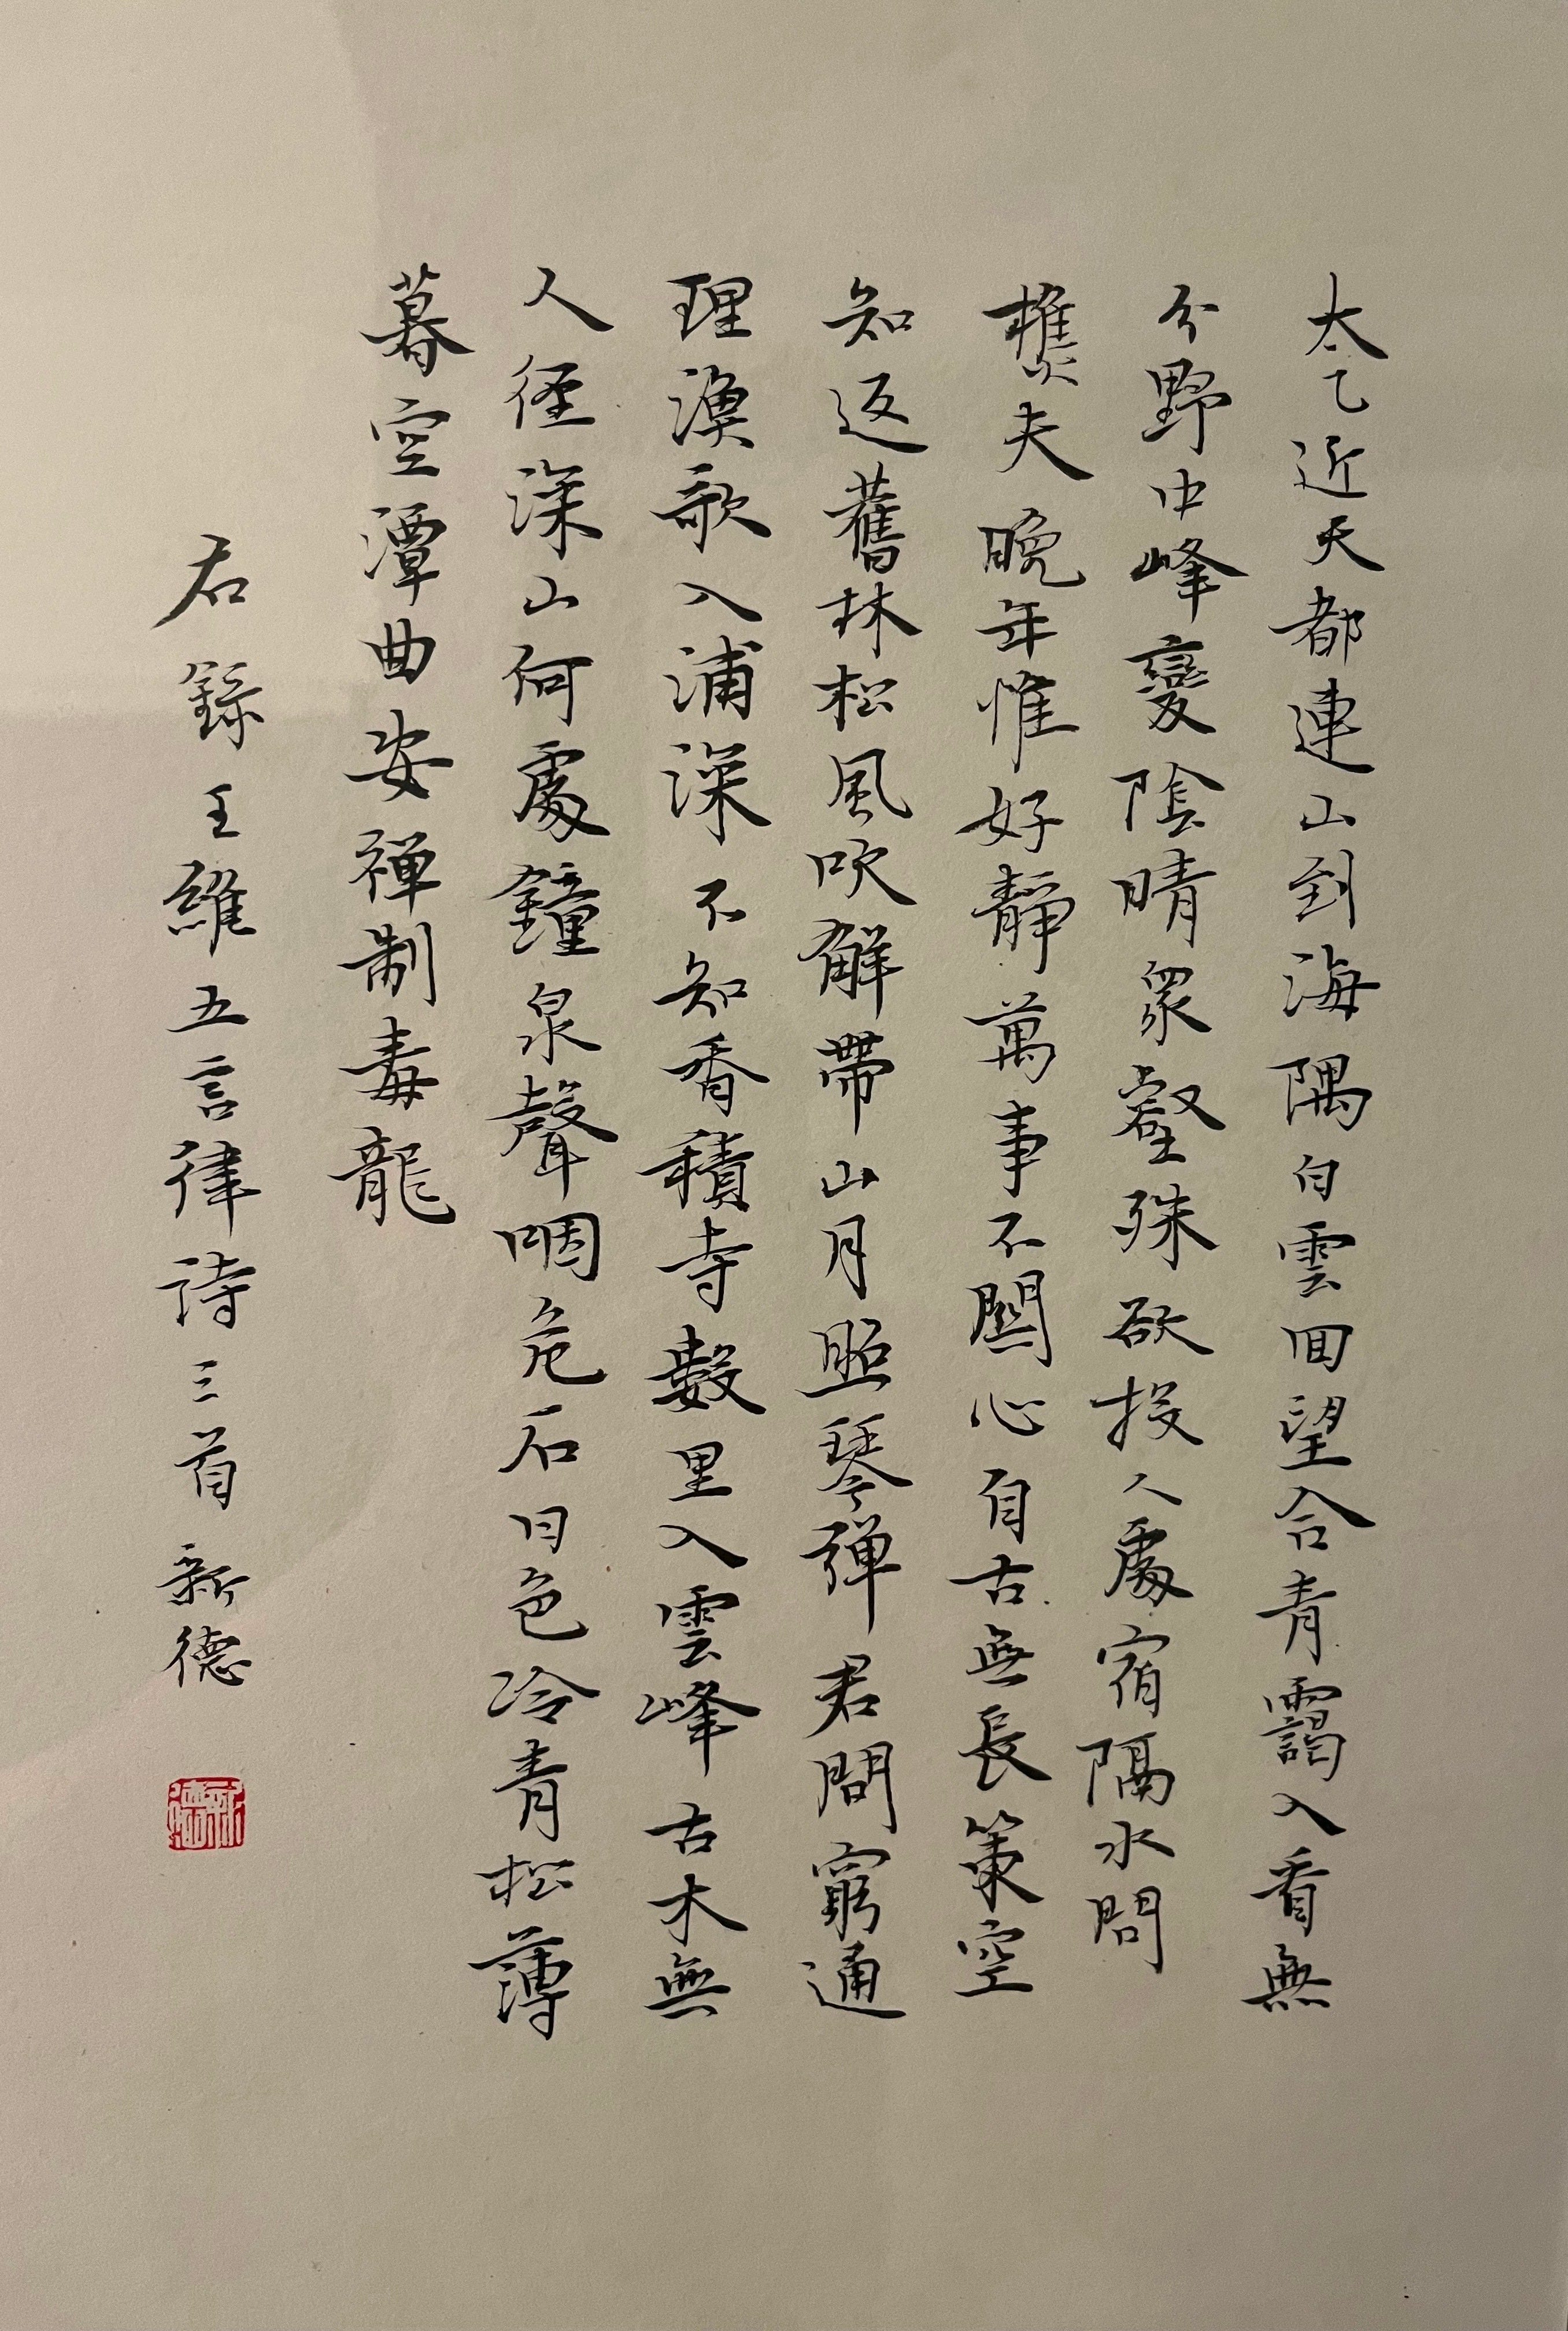 太乙近天都連山到海隅白雲回望合青靄入看無
分野中峰變陰晴衆壑殊欲投人處宿隔水問
樵夫晚年惟好靜萬事不關心自古無長策空
知返舊林松風吹解帶山月照琴彈君問窮通
理漁歌入浦深不知香積寺數里入雲峰古木無
人徑深山何處鐘泉聲咽危石日色冷青松薄
暮空潭曲安禪制毒龍
右錄王維五言律詩三首新德
新德